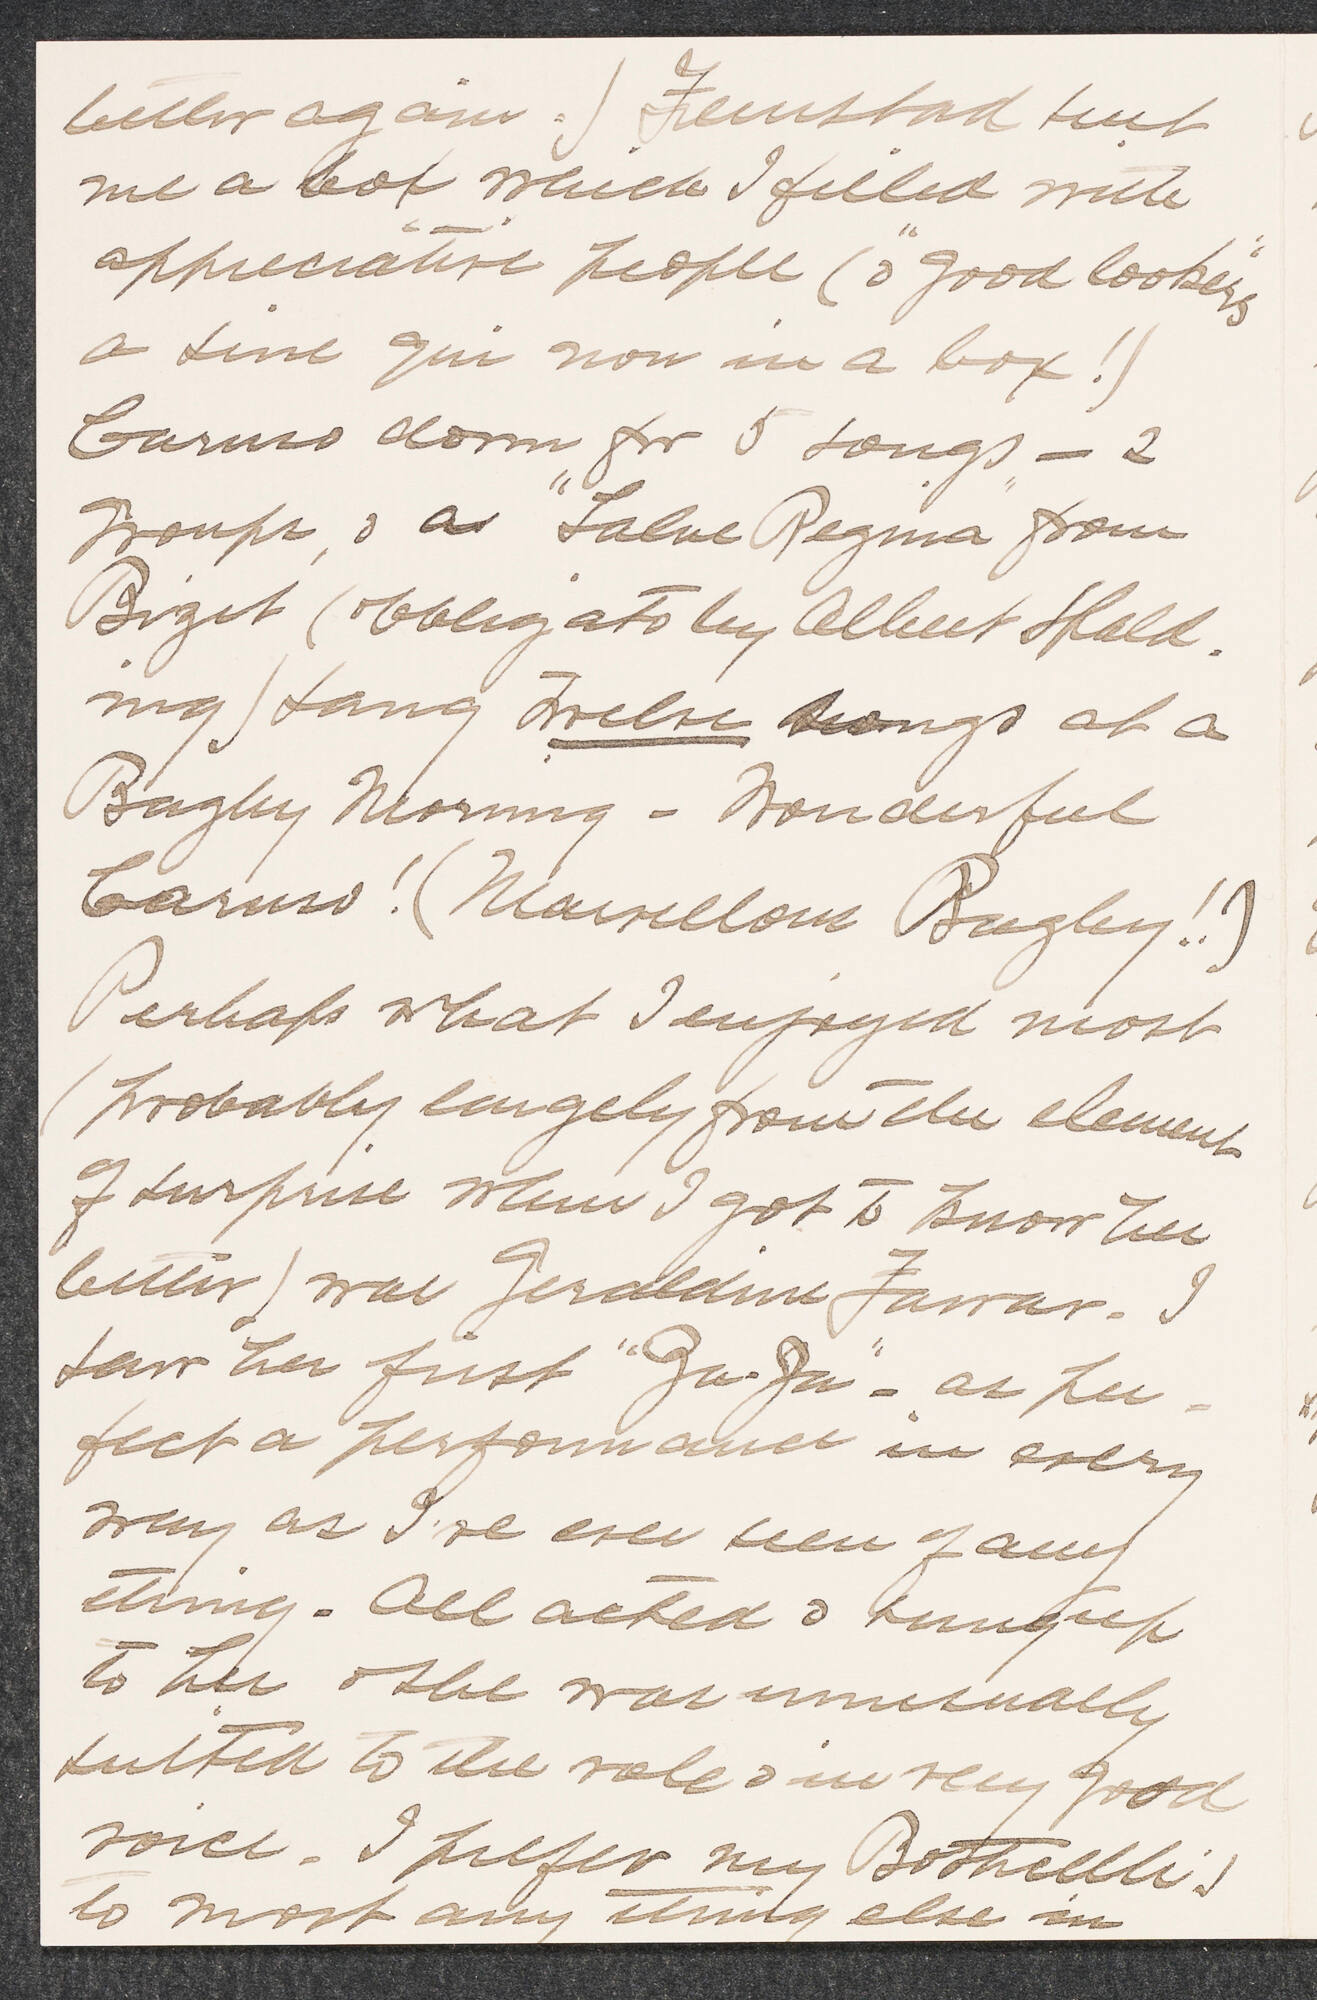 better again.) Fremstad sent
me a box which I filled with
appreciative people (& "good lookers"
a sine qui non in a box!)
Caruso down for 5 songs – 2
groups, & as "Salve Regina" from
Bizet (obbligato by Albert Spald-
ing) sang twelve songs at a
Bagby Morning – Wonderful
Caruso! (Marvellous Bagby!!)
Perhaps what I enjoyed most
(probably largely from the element
of surprise when I got to know her
better) was Geraldine Farrar. I
saw her first "Za-Za" – as per-
fect a performance in every
way as I've ever seen of any
thing. All acted & sung up
to her & she was unusually
suited to the role & in very good
voice. I prefer my Botticelli's
to most any thing else in